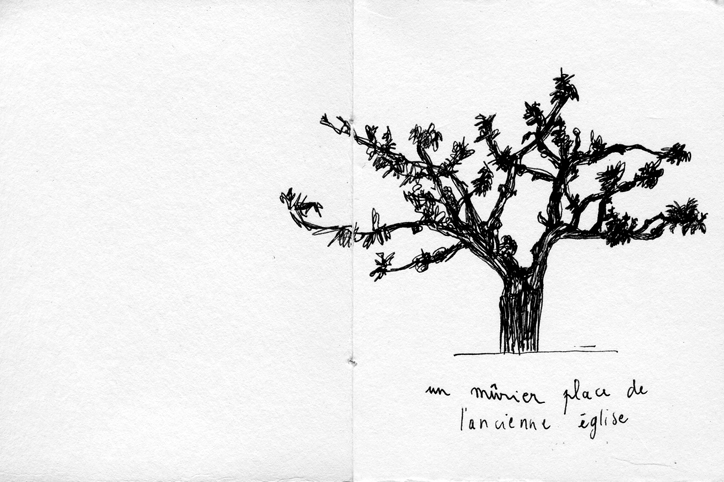 un mûrier place de
l'ancienne église